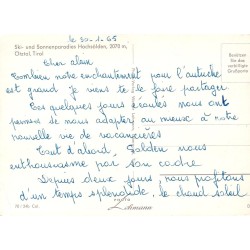 le 30-1-65
Ski- und Sonnenparadies Hochsölden, 2070 m,
Ötztal, Tirol
Cher alain
Combien notre enchantement pour l'autriche
est grand je viens te le faire partager
Ces quelques jours écoulés nous ont
permis de nous adapter au mieux à notre
nouvelle vie de vacancières
Tout d'abord Solden nous
enthousiasme par son cadre
Depuis deux jours nous profitons
d'un temps splendide, le chaud soleil
Benützen
Sie das
verbilligte
Grußporto
PHOTO
Lohmann